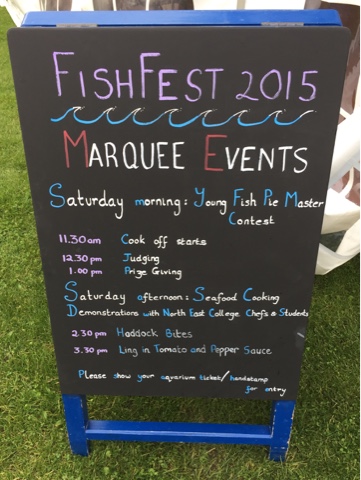 FishFest 2015
Marquee Events
Saturday morning: Young Fish Pie Master
Contest
11.30am Cook off starts
12.30pm Judging
1.00pm Prize Giving
Saturday afternoon: Seafood Cooking
Demonstrations with North East College Chefs & Students
2.30 pm Haddock Bites
3.30 pm Ling in Tomato and Pepper Sauce
Please show your aquarium ticket/handstamp
for entry